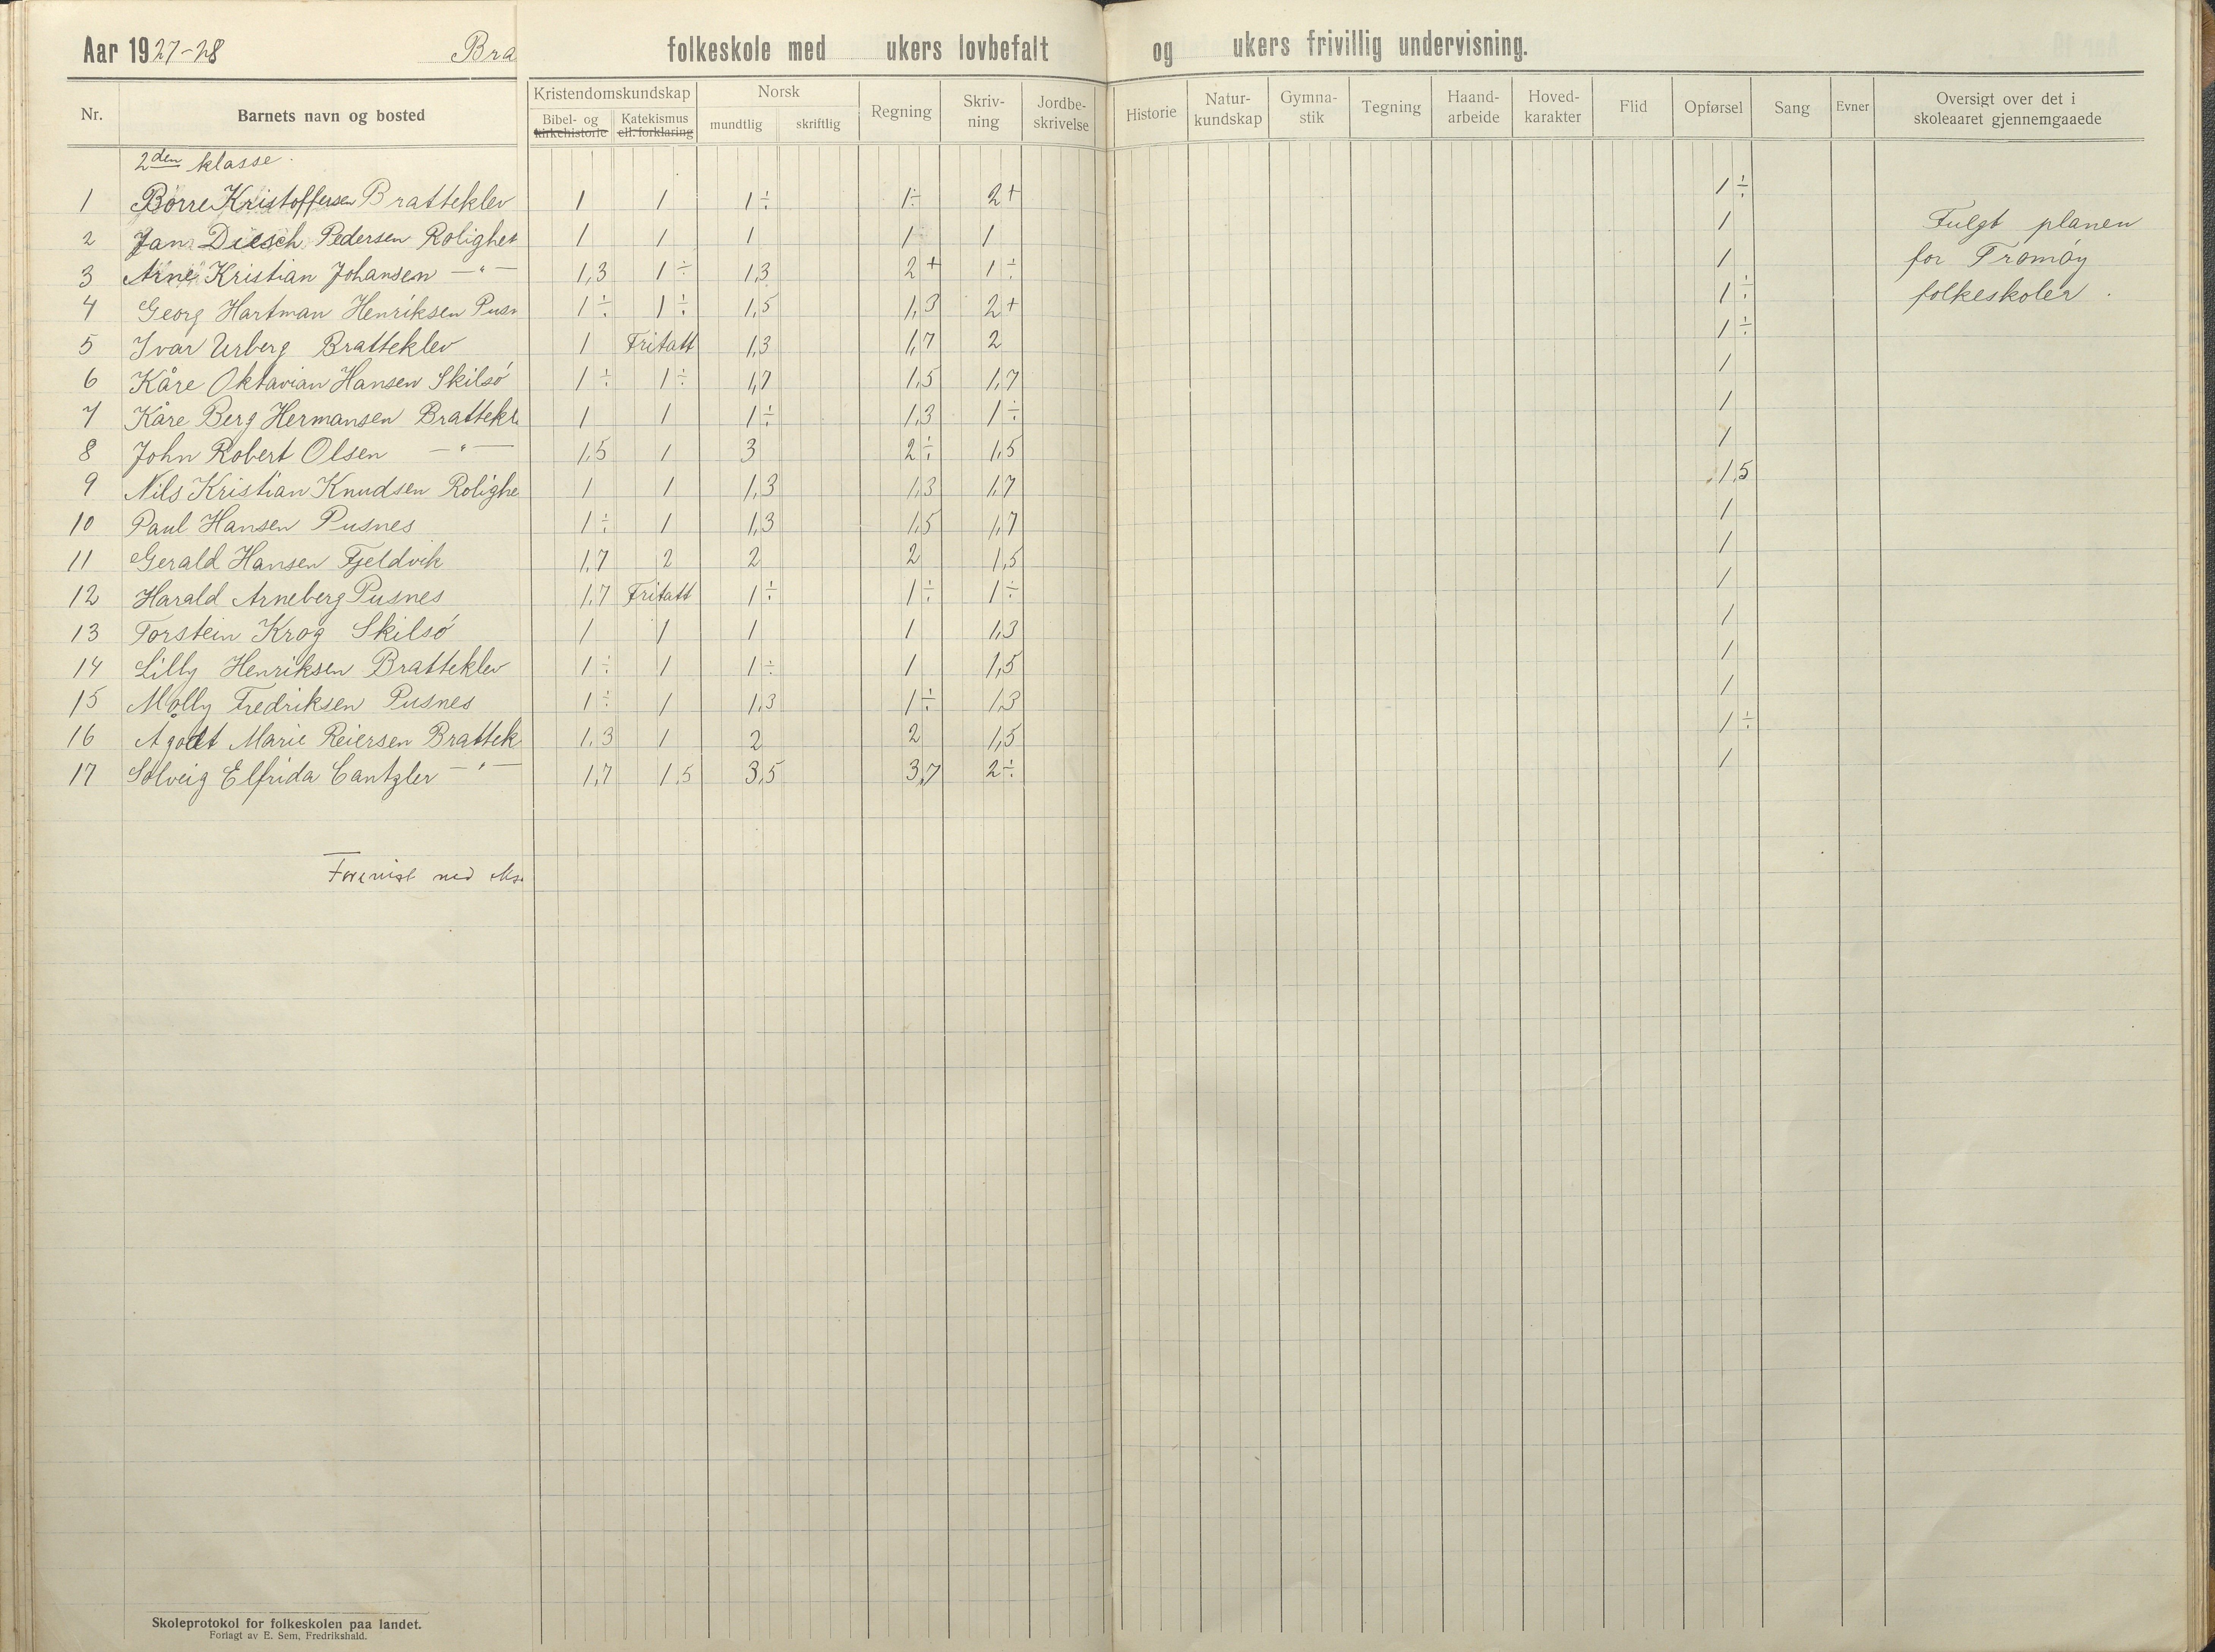 Aar 1927-28 Bra folkeskole med ukers lovbefalt og ukers frivillig undervisning.
Nr. Barnets navn og bosted Kristendomskundskap Bibel- og kirkehistorie Katekismus ell. forklaring Norsk mundtlig skriftlig Regning Skrivning Jordbeskrivelse Historie Naturkundskap Gymnastik Tegning Haandarbeide Hovedkarakter Flid Opførsel Sang Evner Oversigt over det i skoleaaret gjennemgaaede
2den klasse.
1 Börre Kristoffersen Bratteklev 1 1 1÷ 1÷ 2+ 1÷
2 Jan Diesch Pedersen Rolighet 1 1 1 1 1 1 Fulgt planen
3 Arne Kristian Johansen —"— 1,3 1÷ 1,3 2+ 1÷ 1 for Tromöy
4 Georg Hartman Henriksen Pusn 1÷ 1÷ 1,5 1,3 2+ 1÷ folkeskoler.
5 Ivar Urberg Bratteklev 1 Fritatt 1,3 1,7 2 1÷
6 Kåre Oktavian Hansen Skilsö 1÷ 1÷ 1,7 1,5 1,7 1
7 Kåre Berg Hermansen Brattekl 1 1 1÷ 1,3 1÷ 1
8 John Robert Olsen —"— 1,5 1 3 2÷ 1,5 1
9 Nils Kristian Knudsen Rolighe 1 1 1,3 1,3 1,7 1,5
10 Paul Hansen Pusnes 1÷ 1 1,3 1,5 1,7 1
11 Gerald Hansen Fjeldvik 1,7 2 2 2 1,5 1
12 Harald Arneberg Pusnes 1,7 Fritatt 1÷ 1÷ 1÷ 1
13 Torstein Krog Skilsö 1 1 1 1 1,3 1
14 Lilly Henriksen Bratteklev 1÷ 1 1÷ 1 1,5 1
15 Molly Fredriksen Pusnes 1÷ 1 1,3 1÷ 1,3 1
16 Agodt Marie Reiersen Brattek 1,3 1 2 2 1,5 1÷
17 Solveig Elfrida Cantzler —"— 1,7 1,5 3,5 3,7 2÷ 1
Forevist
Skoleprotokol for folkeskolen paa landet.
Forlagt av E. Sem, Fredrikshald.